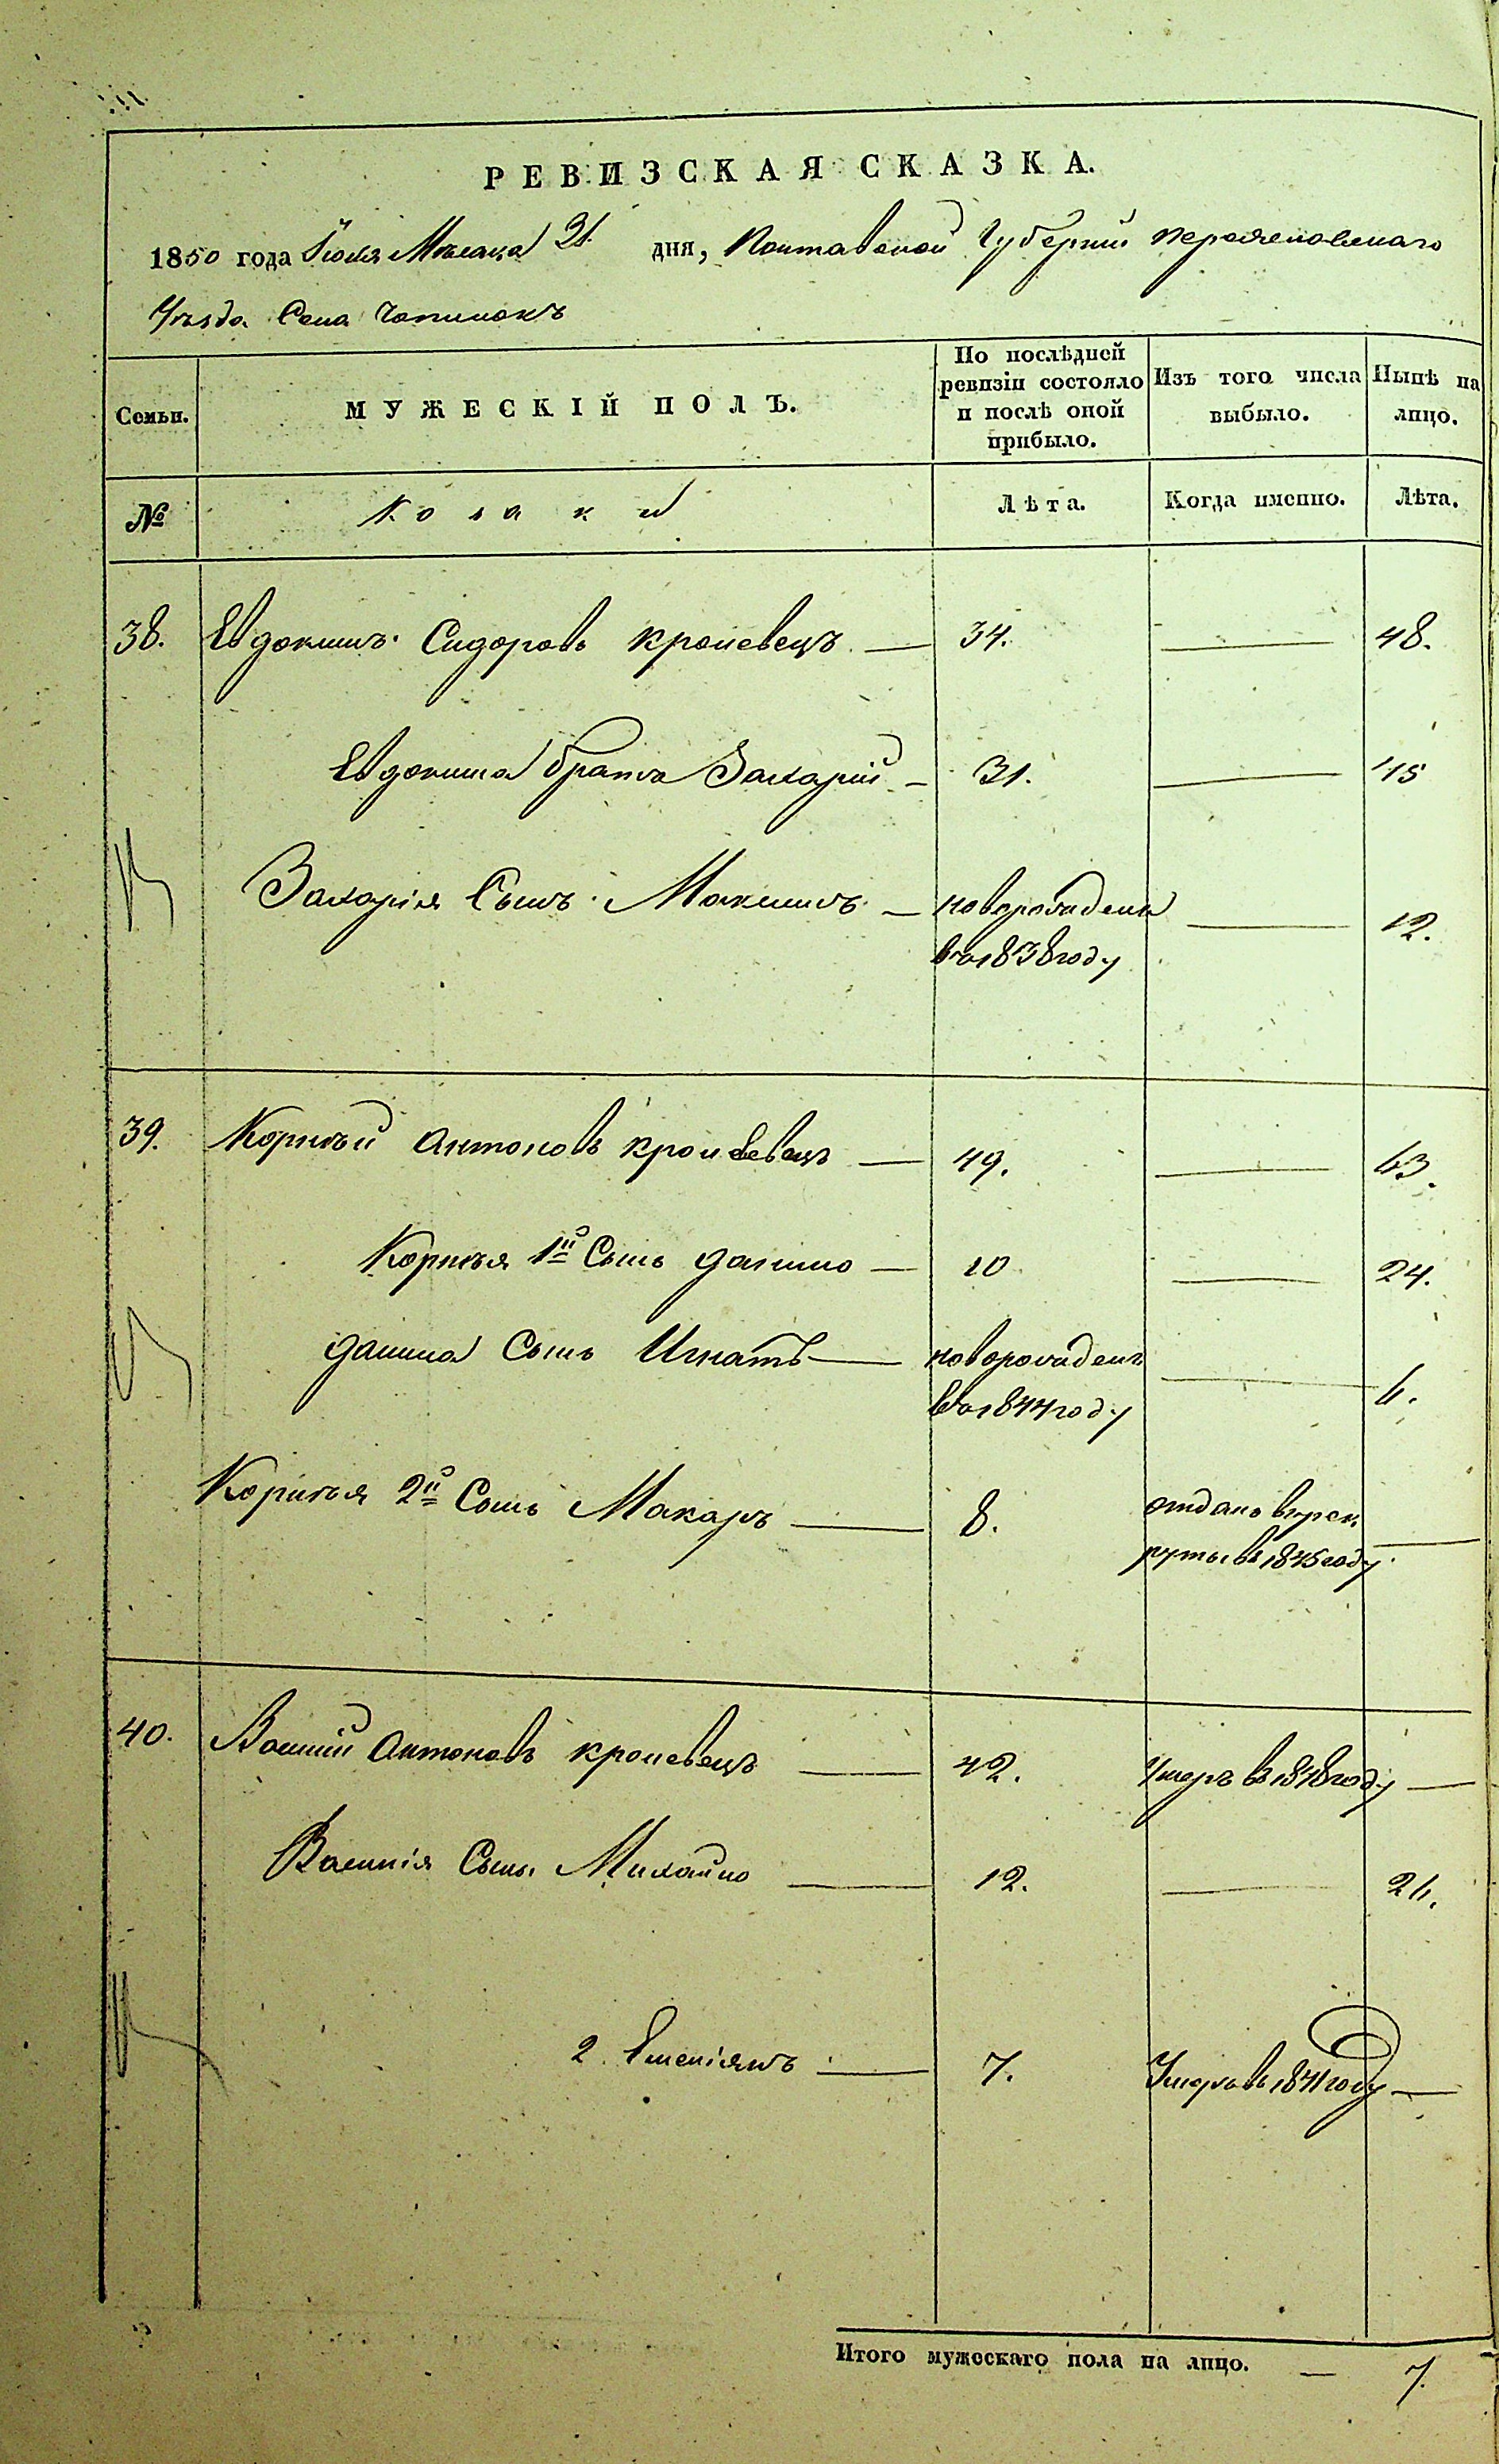 РЕВИЗСКАЯ СКАЗКА.
1850 года Июля Мѣсяца 31. дня, Полтавской Губерніи Переяславскаго
Уѣзда Села
Семьи. МУЖЕСКІЙ ПОЛЪ. По послѣдней ревизіи состояло и послѣ оной прибыло. Изъ того числа выбыло. Нынѣ на лицо.
№ Козаки Лѣта. Когда именно. Лѣта.
38. Евдокимъ Сидоровъ Кролевецъ — 34. — 48.
Евдокима братъ Захарій — 31. — 45
Захарія Сынъ Максимъ — новорожденъ — 12.
въ 1838 году
39. Корнѣй Антоновъ Кролевецъ — 49. — 63.
Корнѣя 1й Сынъ Данило — 10 — 24.
Данила Сынъ Игнатъ — новорожденъ — 6.
въ 1844 году
Корнѣя 2й Сынъ Макаръ — 8. отданъ в рек
руты в 1845 году —
40. Василій Антоновъ Кролевецъ — 42. Умеръ в 1848 году —
Василія Сынъ Михайло — 12. — 26.
2. Емеліянъ — 7. Умеръ въ 1841 году —
Итого мужескаго пола на лицо. — 7.